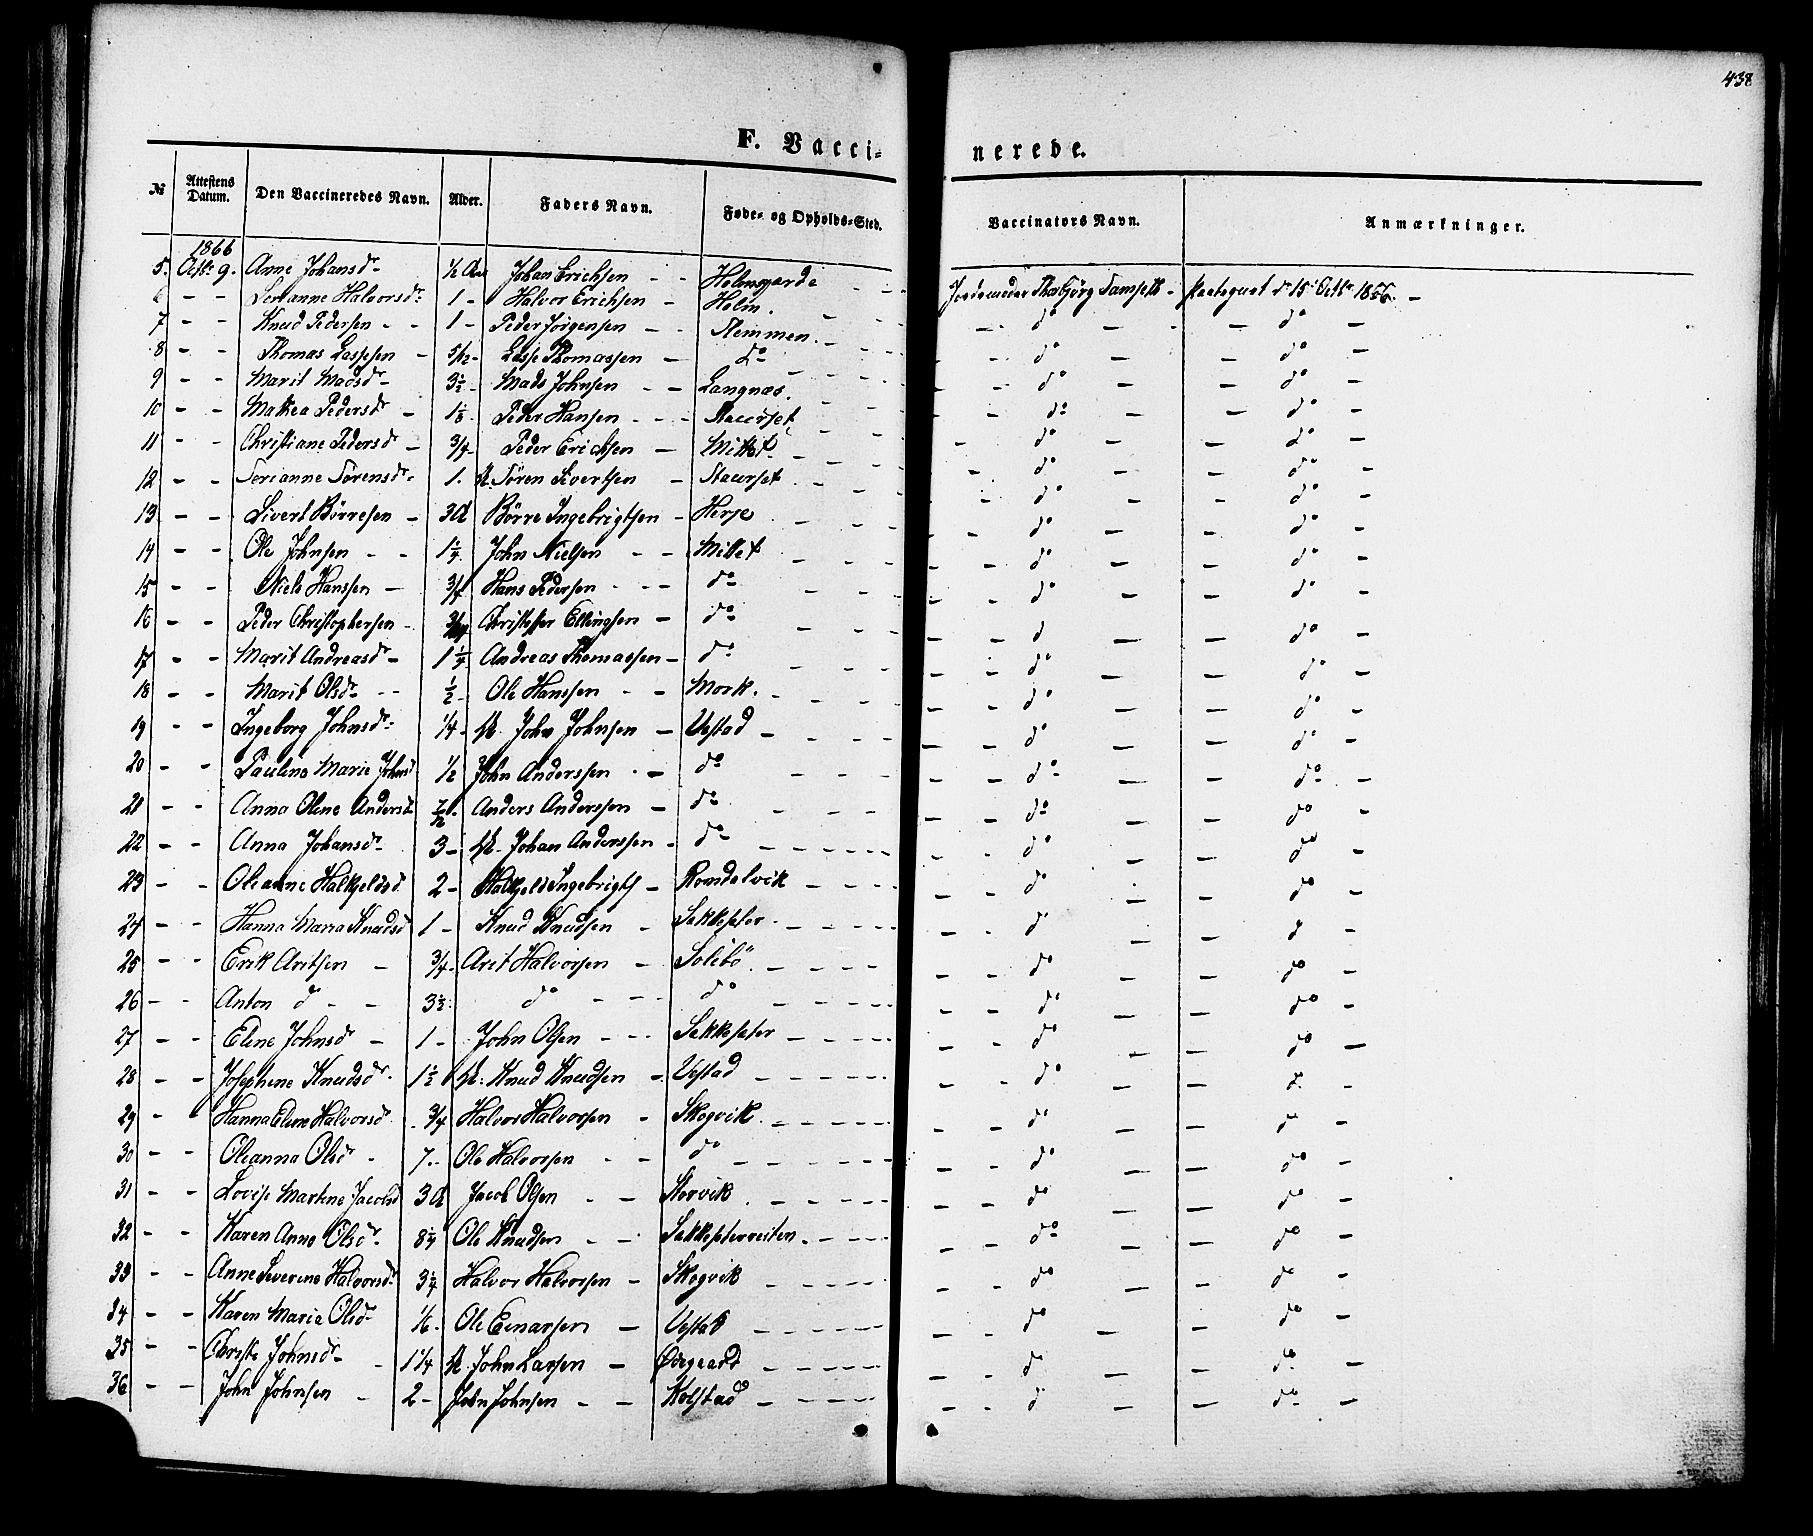 438
F. Vacci-nerede.
№ Attestens Datum. Den Vaccineredes Navn. Alder. Faders Navn. Føde- og Opholds-Sted. Vaccinators Navn. Anmærkninger.
1866
5. Octbr 9. Anne Johansdr ½ Johan Erichsen - - Holmsgarde - - Jordemoder Thabjörg Tamseth - Paategnet d 15 Octbr 1866. -
6 - - Serianne Halvorsdr 1 - Halvor Erichsen - Holm. - - do - - do -
7 - - Knud Pedersen - - 1 - Peder Jörgensen - - Stemmen. - - do - - do -
8 - - Thomas Lassesen - 5/12 - Lasse Thomassen - do - - do - - do -
9 - - Marit Madsdr - 3½ - Mads Johnsen - - Langnæs. - - do - - do -
10 - - Mathea Pedersdr - 1⅛ - Peder Hansen - - - Staurset - - do - - do -
11 - - Christiane Pedersdr - ¾ - Peder Erichsen - Mittet - - do - - do -
12 - - Serianne Sörensdr 1. Sören Sivertsen - Staurset - - do - - do -
13 - - Sivert Börresen - 3 Börre Ingebrigtsen - Herje - - do - - do -
14 - - Ole Johnsen - - 1¼ John Nielsen - - Mittet - - do - - do -
15 - - Niels Hanssen - ¾ Hans Pedersen - - - do - - do - - do -
16 - - Peder Christophersen - Christoffer Ellingsen - do - - d - - do -
17 - - Marit Andreasdr - 1¼ Andreas Thomassen - do - - do - - do -
18 - - Marit Olsdr - - ½ - Ole Hanssen - - Mork. - - do - - do -
19 - - Ingeborg Johnsdr ¼ - John Johnsen - Vestad - - do - - do -
20 - - Pauline Marie Johnsd ½ John Anderssen - - do - - do - - do -
21 - - Anna Oline Andersd 7/12 - Anders Anderssen - do - - do - - do -
22 - - Anna Johansdr 3 - Johan Anderssen - do - - do - - do -
23 - - Olianne Halkjeldsd 2 - Halkjeld Ingebrigts - Romdalvik - - do - - do -
24 - - Hanna Maria Knudsd 1 - Knud Knudsen - Sekkesæter - - do - - d -
25 - - Erik Aritsen - ¾ - Arit Halvorsen - Solibö - - do - - do -
26 - - Anton do - - 3½ do - - - do - - do - - do -
27 - - Eline Johnsdr - 1 - John Olsen - - - Sekkeseter - - do - - do -
28 - - Josephine Knudsdr 1½ Knud Knudsen - Vestad - - do - - d. -
29 - - Hanna Eline Halvorsd ¾ Halvor Halvorsen - Skogvik - - do - - do -
30 - - Olianna Olsdr - 7 - Ole Halvorsen - - do - - do - - do -
31 - - Lovise Martine Jacobsd 3 Jacob Olsen - - Storvik - - do - - do -
32 - - Karen Anne Olsdr 8¼ Ole Knudsen - - Sekkeseterreiten. - - do - - do -
33 - - Anne Severine Halvorsdr 3¼ Halvor Halvorsen - Skogvik - - do - - do -
34 - - Karen Marie Olsdr ⅙ - Ole Einarsen - Vestad - - do - - do -
35 - - Christi Johnsdr - 1¼ John Larsen - Ødegaard - - do - - do -
36 - - John Johnsen - 2 - John Johnsen - - Kolstad - - d - - do -